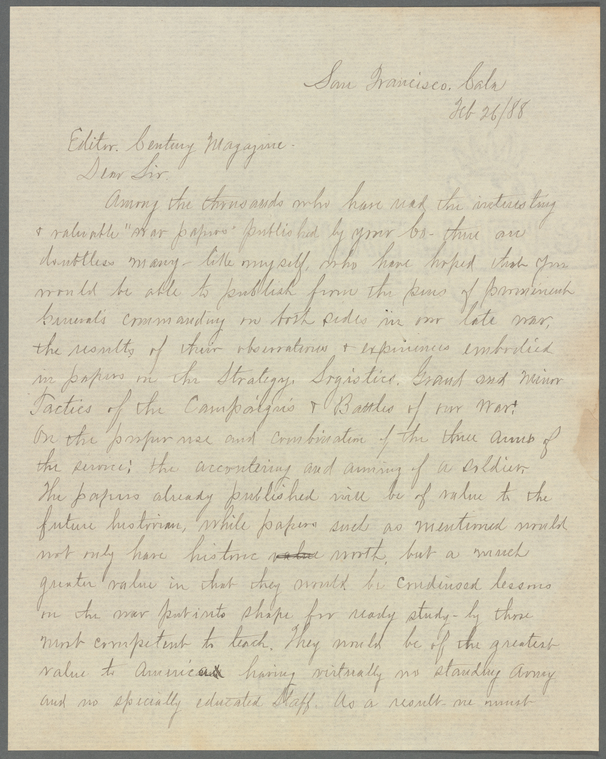 San Francisco. Cala
Feb 26/88
Editor. Century Magazine.
Dear Sir.
Among the thousands who have read the interesting
& valuable "war papers" published by your Co- there are
doubtless many- like myself, who have hoped that you
would be able to publish from the pens of prominent
Generals commanding on both sides in our late war,
the results of their observations & experiences embodied
in papers on the Strategy, Logistics, Grand and Minor
Tactics of the Campaigns & Battles of our War:
On the proper use and combination of the three arms of
the service: the accoutering and arming of a soldier.
The papers already published will be of value to the
future historian, while papers such as mentioned would
not only have historic value worth, but a much
greater value in that they would be condensed lessons
on the war put into shape for ready study- by those
most competent to teach. They would be of the greatest
value to America having virtually no standing Army
and no specially educated Staff. As a result we must